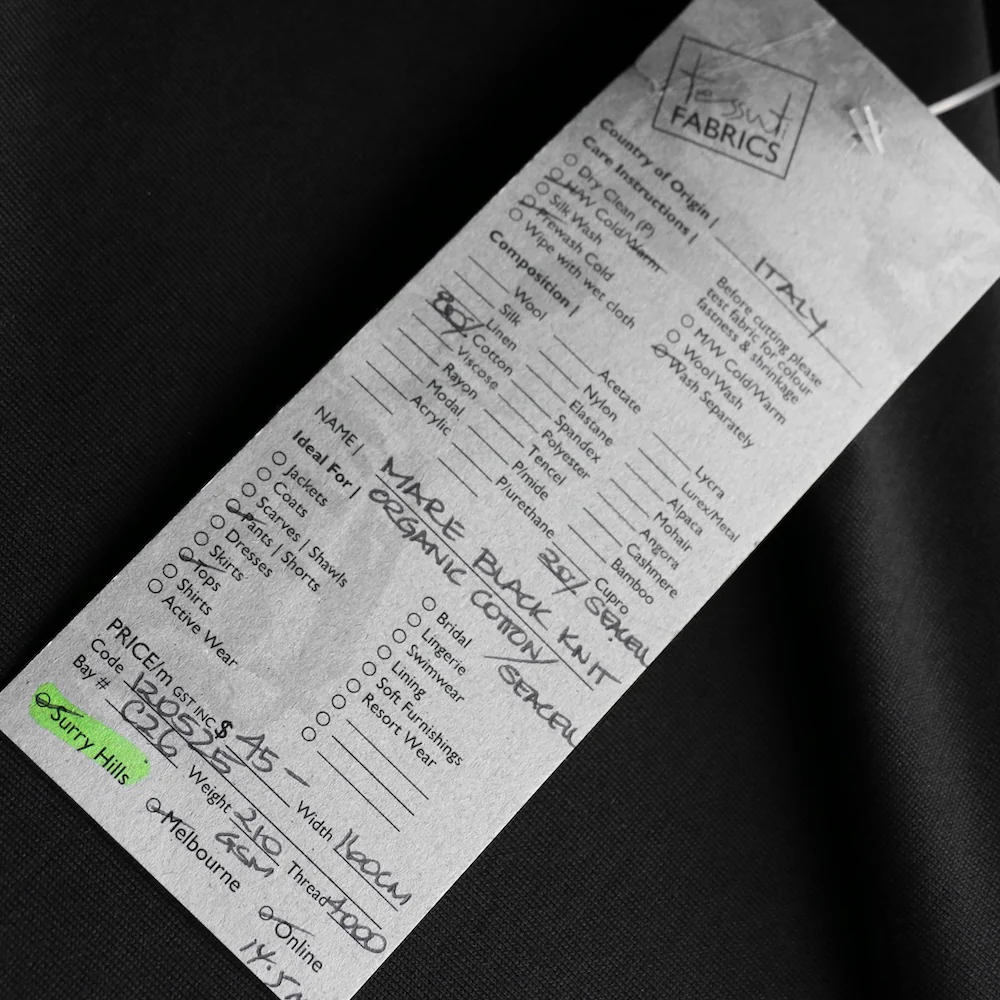 tessuti
FABRICS
Country of Origin | ITALY
Care Instructions |
Dry Clean (P)
H/W Cold/Warm
Silk Wash
Prewash Cold
Wipe with wet cloth
Before cutting please
test fabric for colour
fastness & shrinkage
M/W Cold/Warm
Wool Wash
Wash Separately
Composition |
Wool
Silk
Linen
80% Cotton
Viscose
Rayon
Modal
Acrylic
Acetate
Nylon
Elastane
Spandex
Polyester
Tencel
P/mide
P/urethane
Lycra
Lurex/Metal
Alpaca
Mohair
Angora
Cashmere
Bamboo
Cupro
20% SEACELL
NAME | MARE BLACK KNIT
ORGANIC COTTON/
SEACELL
Ideal For |
Jackets
Coats
Scarves | Shawls
Pants | Shorts
Dresses
Skirts
Tops
Shirts
Active Wear
Bridal
Lingerie
Swimwear
Lining
Soft Furnishings
Resort Wear
PRICE/m GST INC $ 45 -
Code 120525 Width 160CM
Bay # C26 Weight 210 GSM Thread 4000
Surry Hills
Melbourne
Online
14.5